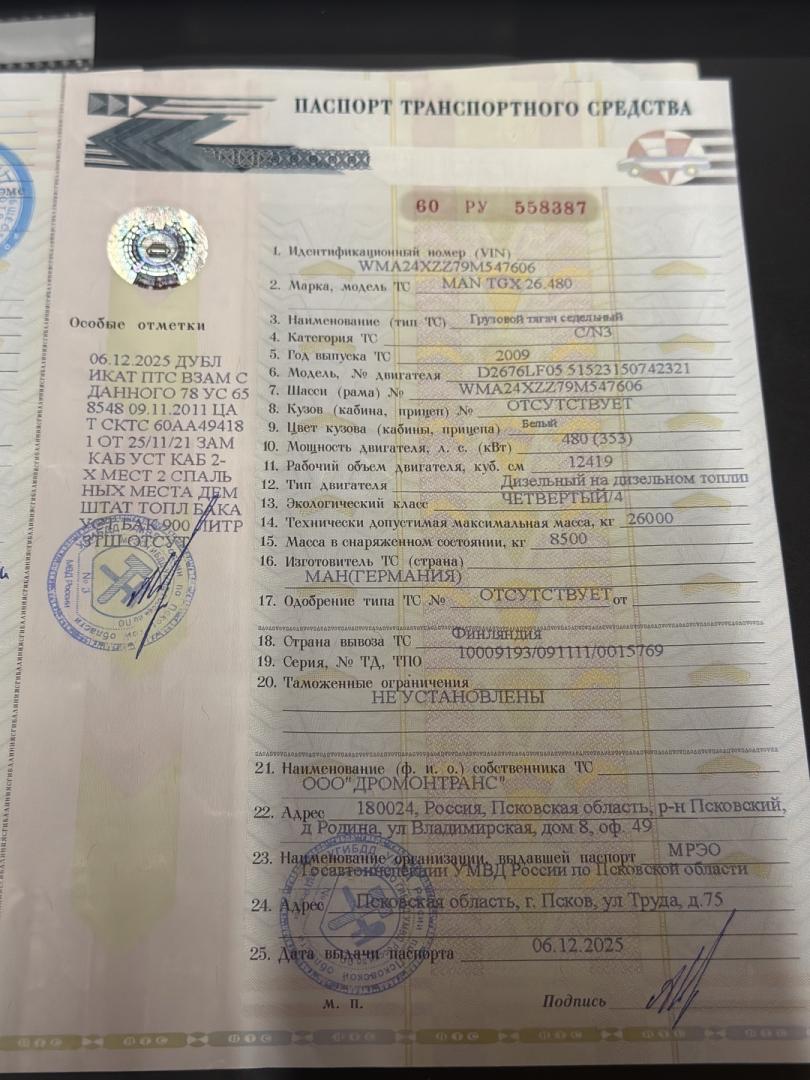 ПАСПОРТ ТРАНСПОРТНОГО СРЕДСТВА
60 РУ 558387
1. Идентификационный номер (VIN)
WMA24XZZ79M547606
2. Марка, модель ТС MAN TGX 26.480
3. Наименование (тип ТС) Грузовой тягач седельный
4. Категория ТС C/N3
5. Год выпуска ТС 2009
6. Модель, № двигателя D2676LF05 51523150742321
7. Шасси (рама) № WMA24XZZ79M547606
8. Кузов (кабина, прицеп) № ОТСУТСТВУЕТ
9. Цвет кузова (кабины, прицепа) Белый
10. Мощность двигателя, л. с. (кВт) 480 (353)
11. Рабочий объем двигателя, куб. см 12419
12. Тип двигателя Дизельный на дизельном топли
13. Экологический класс ЧЕТВЕРТЫЙ/4
14. Технически допустимая максимальная масса, кг 26000
15. Масса в снаряженном состоянии, кг 8500
16. Изготовитель ТС (страна)
МАН(ГЕРМАНИЯ)
17. Одобрение типа ТС № ОТСУТСТВУЕТ от
18. Страна вывоза ТС Финляндия
19. Серия, № ТД, ТПО 10009193/091111/0015769
20. Таможенные ограничения
НЕ УСТАНОВЛЕНЫ
21. Наименование (ф. и. о.) собственника ТС
ООО"ДРОМОНТРАНС"
22. Адрес 180024, Россия, Псковская область, р-н Псковский,
д Родина, ул Владимирская, дом 8, оф. 49
23. Наименование организации, выдавшей паспорт МРЭО
Госавтоинспекции УМВД России по Псковской области
24. Адрес Псковская область, г. Псков, ул Труда, д.75
25. Дата выдачи паспорта 06.12.2025
М. П. Подпись
Особые отметки
06.12.2025 ДУБЛ
ИКАТ ПТС ВЗАМ С
ДАННОГО 78 УС 65
8548 09.11.2011 ЦА
Т СКТС 60АА49418
1 ОТ 25/11/21 ЗАМ
КАБ УСТ КАБ 2-
Х МЕСТ 2 СПАЛЬ
НЫХ МЕСТА ДЕМ
ШТАТ ТОПЛ БАКА
УСТ БАК 900 ЛИТР
ЭТШ ОТСУТ